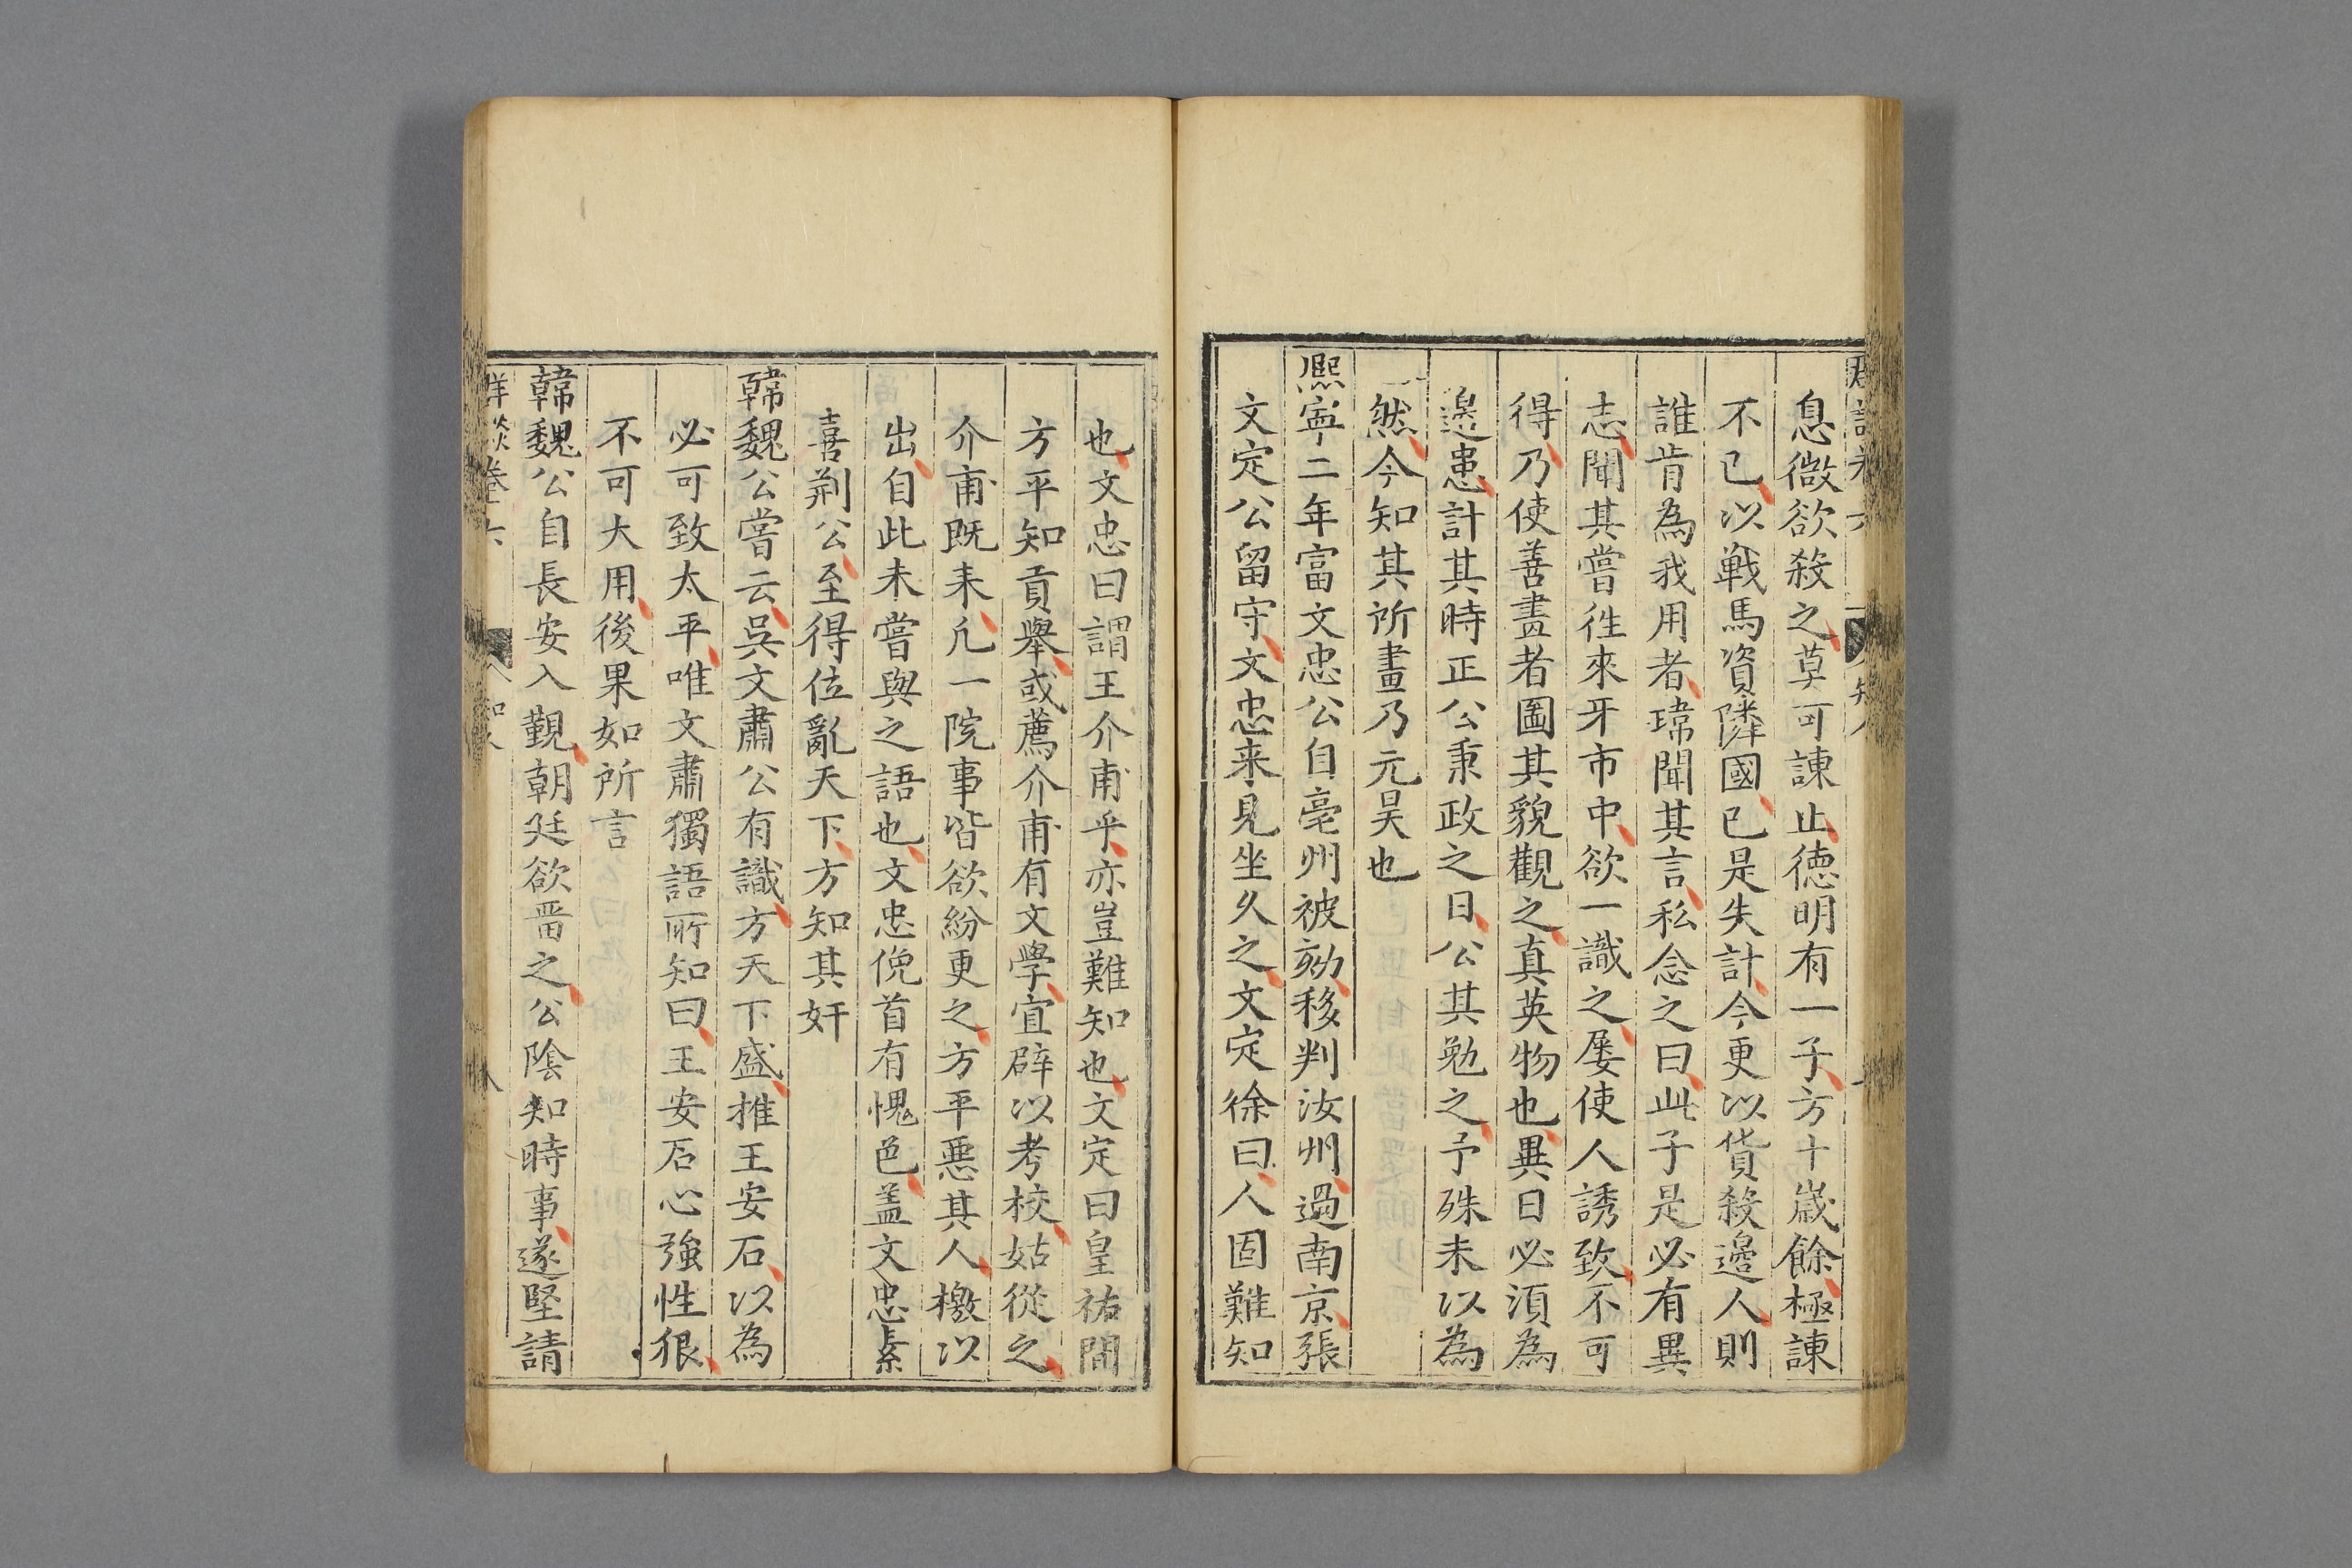 息微欲殺之莫可諫止德明有一子方十歲餘極諫
不已以戰馬資隣國已是失計今更以貨殺邊人則
誰肯為我用者瑋聞其言私念之曰此子是必有異
志聞其嘗徃來牙市中欲一識之屢使人誘致不可
得乃使善畫者圖其貌觀之真英物也異日必湏為
邉患計其時正公秉政之日公其勉之予殊未以為
然今知其所畫乃元昊也
熙寧二年富文忠公自亳州被劾移判汝州過南京張
文定公留守文忠来見坐久之文定徐曰人固難知
也文忠曰謂王介甫乎亦豈難知也文定曰皇祐間
方平知貢舉或薦介甫有文學宜辟以考校姑從之
介甫既来凢一院事皆欲紛更之方平惡其人檄以
出自此未嘗與之語也文忠俛首有愧色盖文忠素
喜荆公至得位亂天下方知其奸
韓魏公嘗云吳文肅公有識方天下盛推王安石以為
必可致太平唯文肅獨語所知曰王安石心強性狠
不可大用後果如所言
韓魏公自長安入覲朝廷欲畱之公陰知時事遂堅請
卷六